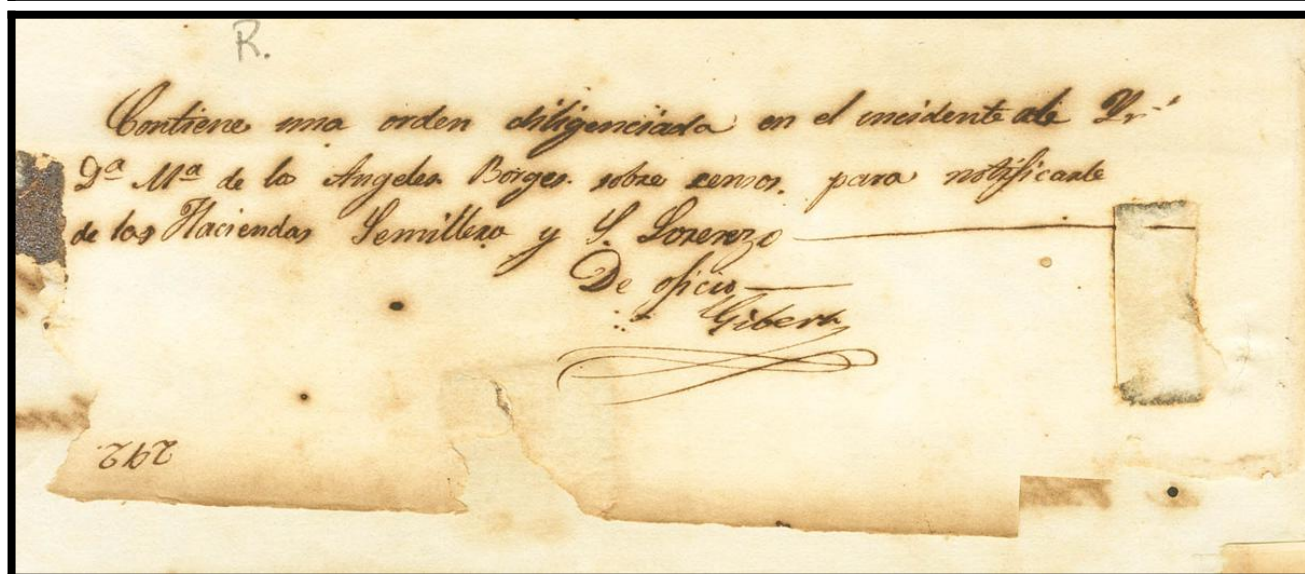 R.
Contiene una orden diligenciada en el incidente de
Dª Mª de los Angeles Borges sobre censos, para notificarle
de las Haciendas Semillero y S. Lorenzo
De oficio
Gibert
242